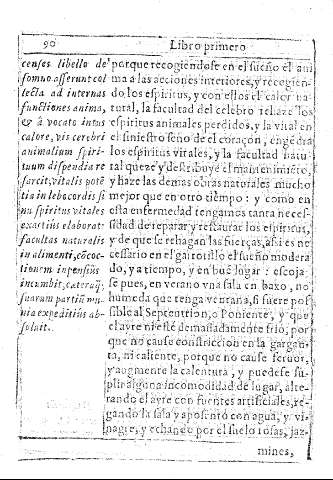 90
Libro primero
censes libello de
somno asserunt col
lecta ad internas
functiones anima,
& à vocato intus
calore, vis cerebri
animalium spiri-
tuum dispendia re
sarcit; vitalis potẽ
tia in lebo cordis si
nu spiritus vitales
exactiùs elaborat:
facultas naturalis
in alimenti, cõcoc-
tionem inpensiùs
incumbit, cateraq;
suarum partiũ mu
nia expeditiùs ab-
soluit.
porque recogiendose en el sueño el ani
ma a las acciones interiores, y recogien
do los espiritus, y con ellos el calor na
tural, la facultad del celebro rehaze los
espiritus animales perdidos, y la vital en
el siniestro seno de el coraçon, engẽdra
los espiritus vitales, y la facultad natu
ral queze y destribuye el mantenimiẽto,
y haze las demas obras naturales mucho
mejor que en otro tiempo: y como en
esta enfermedad tengamos tanta neces-
sidad de reparar y restaurar los espiritus,
y de que se rehagan las fuerças, assi es ne
cessario en el garrotillo el sueño modera
do, y a tiempo, y en buẽ lugar: escoja-
se pues, en verano vna sala en baxo, no
humeda que tenga ventana, si fuere pos
sible al Septentrion, o Poniente, y que
el ayre ni estè demasiadamente frio, por
que no cause constriccion en la gargan-
ta, ni caliente, porque no cause feruor,
y augmente la calentura, y puedese su-
plir alguna incomodidad de lugar, alte-
rando el ayre con fuentes artificiales, re-
gando la sala y aposento con agua, y vi-
nagre, y echando por el suelo rosas, jaz-
mines,